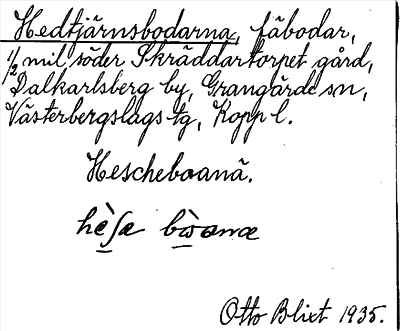 Hedtjärnsbodarna, fäbodar,
1/2 mil söder Skräddartorpet gård,
Dalkarlsberg by, Grangärde sn,
Västerbergslags tg, Kopp l.
Hescheboanä.
hèʃæ bòoanæ
Otto Blixt 1935.